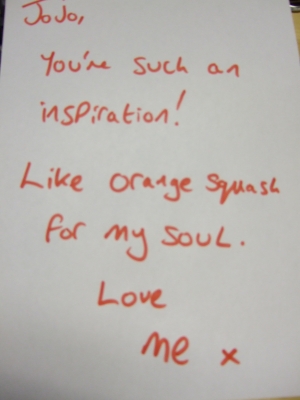 JoJo,
You're such an
inspiration!
Like orange squash
for my soul.
Love
me x